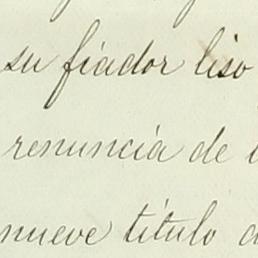 su fiador liso
renuncia de
nueve título